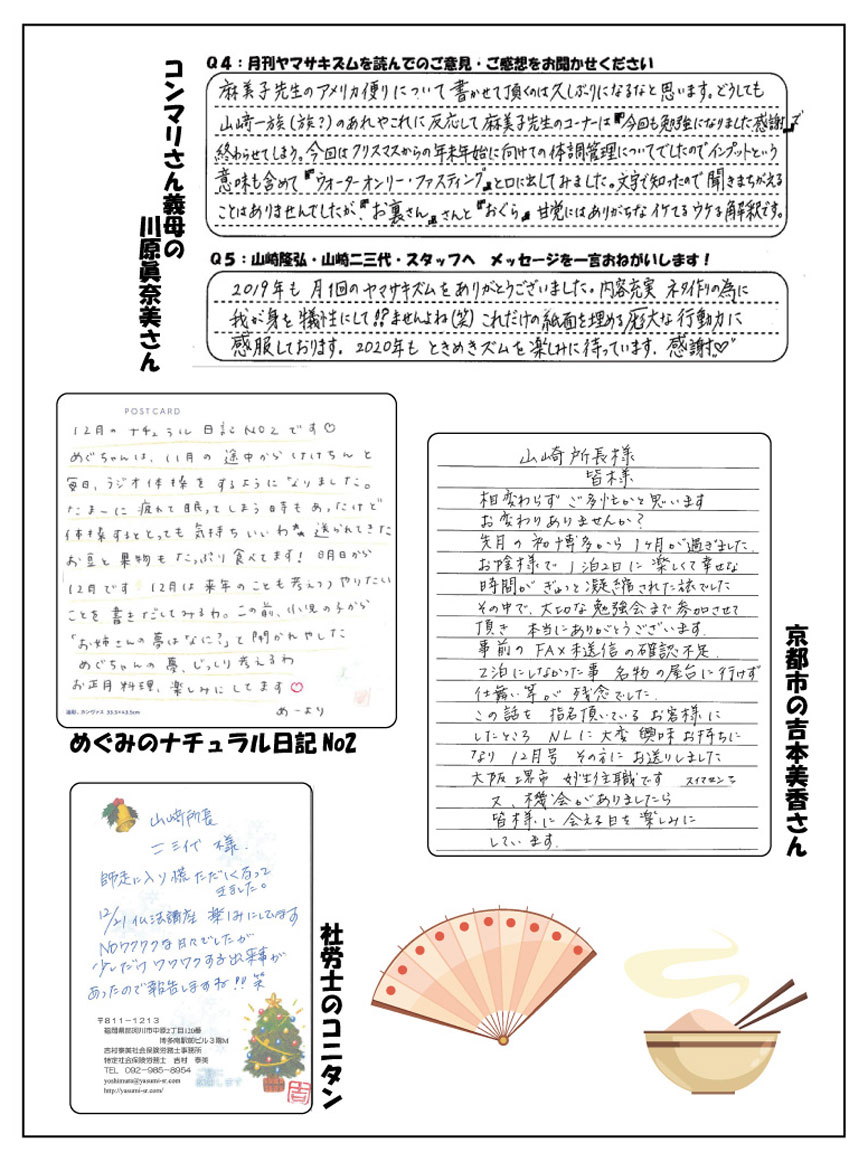 コンマリさん義母の
川原眞奈美さん
Q4：月刊ヤマサキズムを読んでのご意見・ご感想をお聞かせください
麻美子先生のアメリカ便りについて書かせて頂くのは久しぶりになるなと思います。どうしても
山崎一族(族?)のあれやこれに反応して麻美子先生のコーナーは『今回も勉強になりました感謝』で
終わらせてしまう。今回はクリスマスからの年末年始に向けての体調管理についてでしたのでインプットという
意味も含めて『ウォーターオンリー・ファスティング』と口に出してみました。文字で知ったので聞きまちがえる
ことはありませんでしたが、『お裏さん』さんと『おぐら』甘党にはありがちなイケてるウケる解釈です。
Q5：山崎隆弘・山崎二三代・スタッフへ　メッセージを一言おねがいします！
2019年も月1回のヤマサキズムをありがとうございました。内容充実 ネタ作りの為に
我が身を犠牲にして!?ませんよね(笑)これだけの紙面を埋める厖大な行動力に
感服しております。2020年もときめきズムを楽しみに待っています。感謝♡
POSTCARD
12月のナチュラル日記NO2です♡
めぐちゃんは、11月の途中からけちんと
毎日、ラジオ体操をするようになりました。
たまーに疲れて眠ってしまう時もあったけど
体操するととっても気持ちいいわ 送られてきた
お豆と果物もたっぷり食べてます！明日から
12月です 12月は来年のことも考えつつやりたい
ことを書きだしてみるわ。この前、小児の子から
「お姉さんの夢はなに？」と聞かれやした
めぐちゃんの夢、じっくり考えるわ
お正月料理、楽しみにしてます♡
油彩、カンヴァス 33.5×45.5cm
めーより
めぐみのナチュラル日記 No2
山崎所長様
皆様
相変わらずご多忙かと思います
お変わりありませんか？
先月の和博多から1ヶ月が過ぎました
お陰様で1泊2日に楽しくて幸せな
時間がぎゅっと凝縮された旅でした
その中で、大切な勉強会まで参加させて
頂き 本当にありがとうございます。
事前のFAX未送信の確認不足、
2泊にしなかった事 名物の屋台に行けず
仕舞い等が残念でした。
この話を 指名頂いている お客様に
したところ NLに大変興味お持ちに
なり 12月号 その方に お送りしました
大阪 堺市 住職です スイマセン
又、機会がありましたら
皆様に会える日を楽しみに
しています。
京都市の吉本美香さん
山崎所長
二三代 様
師走に入り慌ただしくなって
きました。
12/21 仏法講座 楽しみにしてます
NOワクワクな日々でしたが
少しだけワクワクする出来事が
あったので報告しますね!! 笑
〒811-1213
福岡県那珂川市中原2丁目120番
博多南駅前ビル3階M
吉村泰美社会保険労務士事務所
特定社会保険労務士　吉村　泰美
TEL 092-985-8954
yoshimura@yasumi-sr.com
http://yasumi-sr.com/
吉
社労士のコニタン